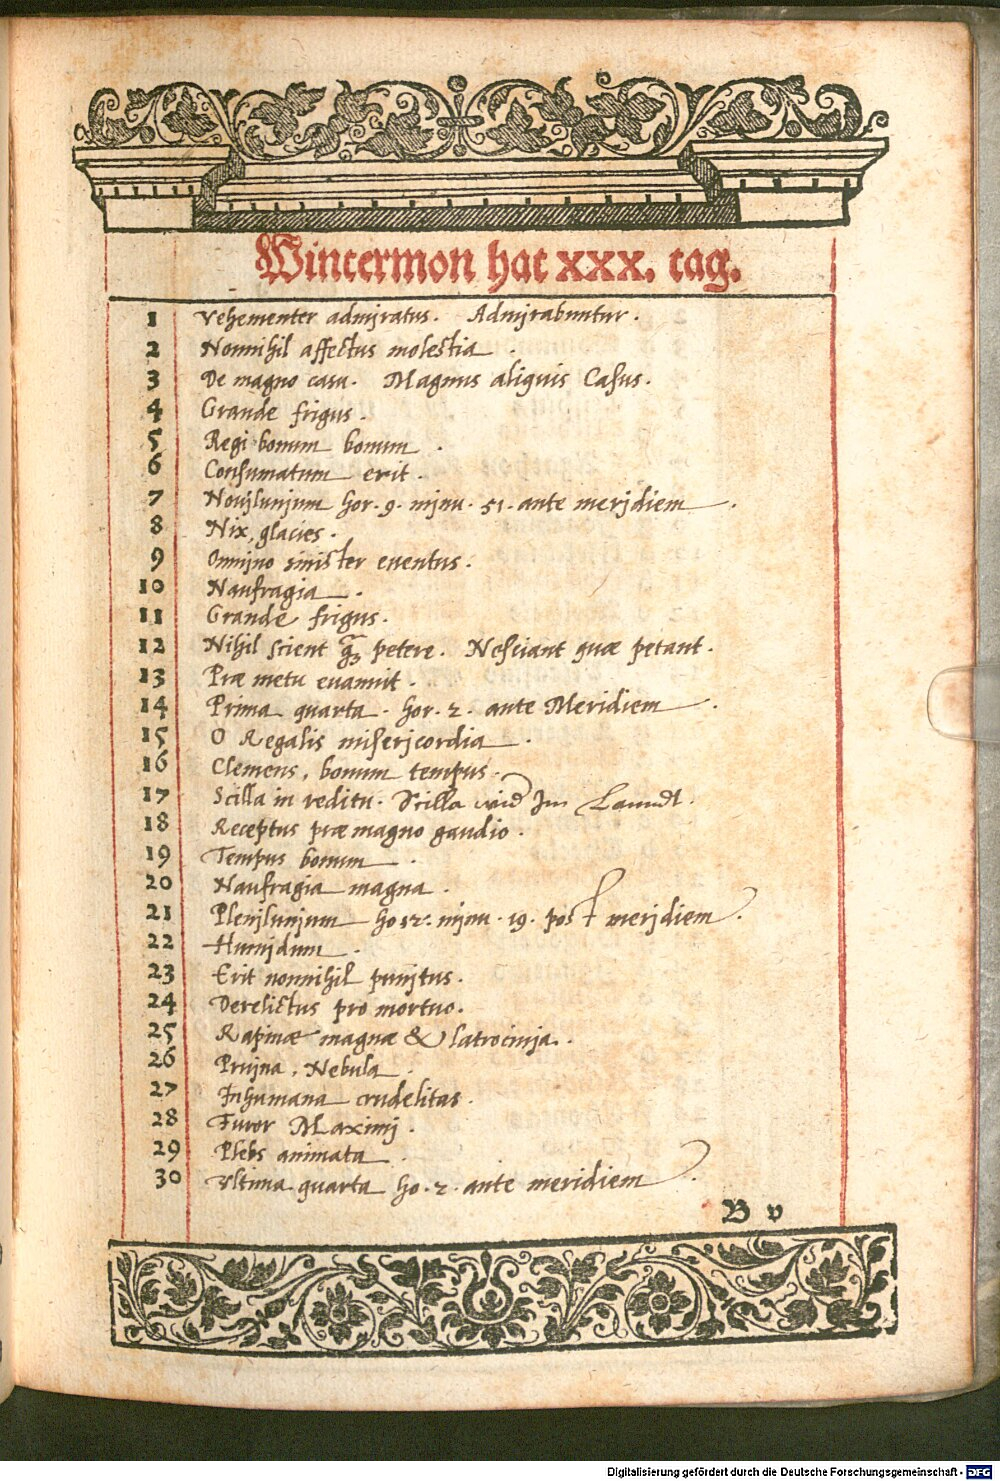 Wintermon hat xxx. tag.
1 Vehementer admiratus. Admirabuntur.
2 Nonnihil affectus molestia.
3 De magno casu. Magnus aliquis Casus.
4 Grande frigus.
5 Regi bonum bonum.
6 Consumatum erit.
7 Novilunium hor. 9. minu. 51. ante meridiem.
8 Nix, glacies.
9 Omnino sinister eventus.
10 Naufragia.
11 Grande frigus.
12 Nihil scient petere. Nesciant quæ petant.
13 Præ metu
14 Prima quarta. hor. 2. ante Meridiem.
15 O Regalis misericordia.
16 Clemens, bonum tempus.
17 Scilla in reditu. Scilla wid Im Lanndt.
18 Receptus præ magno gaudio.
19 Tempus bonum.
20 Naufragia magna.
21 Plenilunium ho 12. minu. 19. post meridiem.
22 Humidum.
23 Erit nonnihil punitus.
24 Derelictus pro mortuo.
25 Rapinæ magnæ & latrocinia.
26 Pruina, Nebula.
27 Inhumana crudelitas.
28 Furor Maximi.
29 Plebs animata.
30 Ultima quarta ho. 2. ante meridiem.
B v
Digitalisierung gefördert durch die Deutsche Forschungsgemeinschaft - DFG